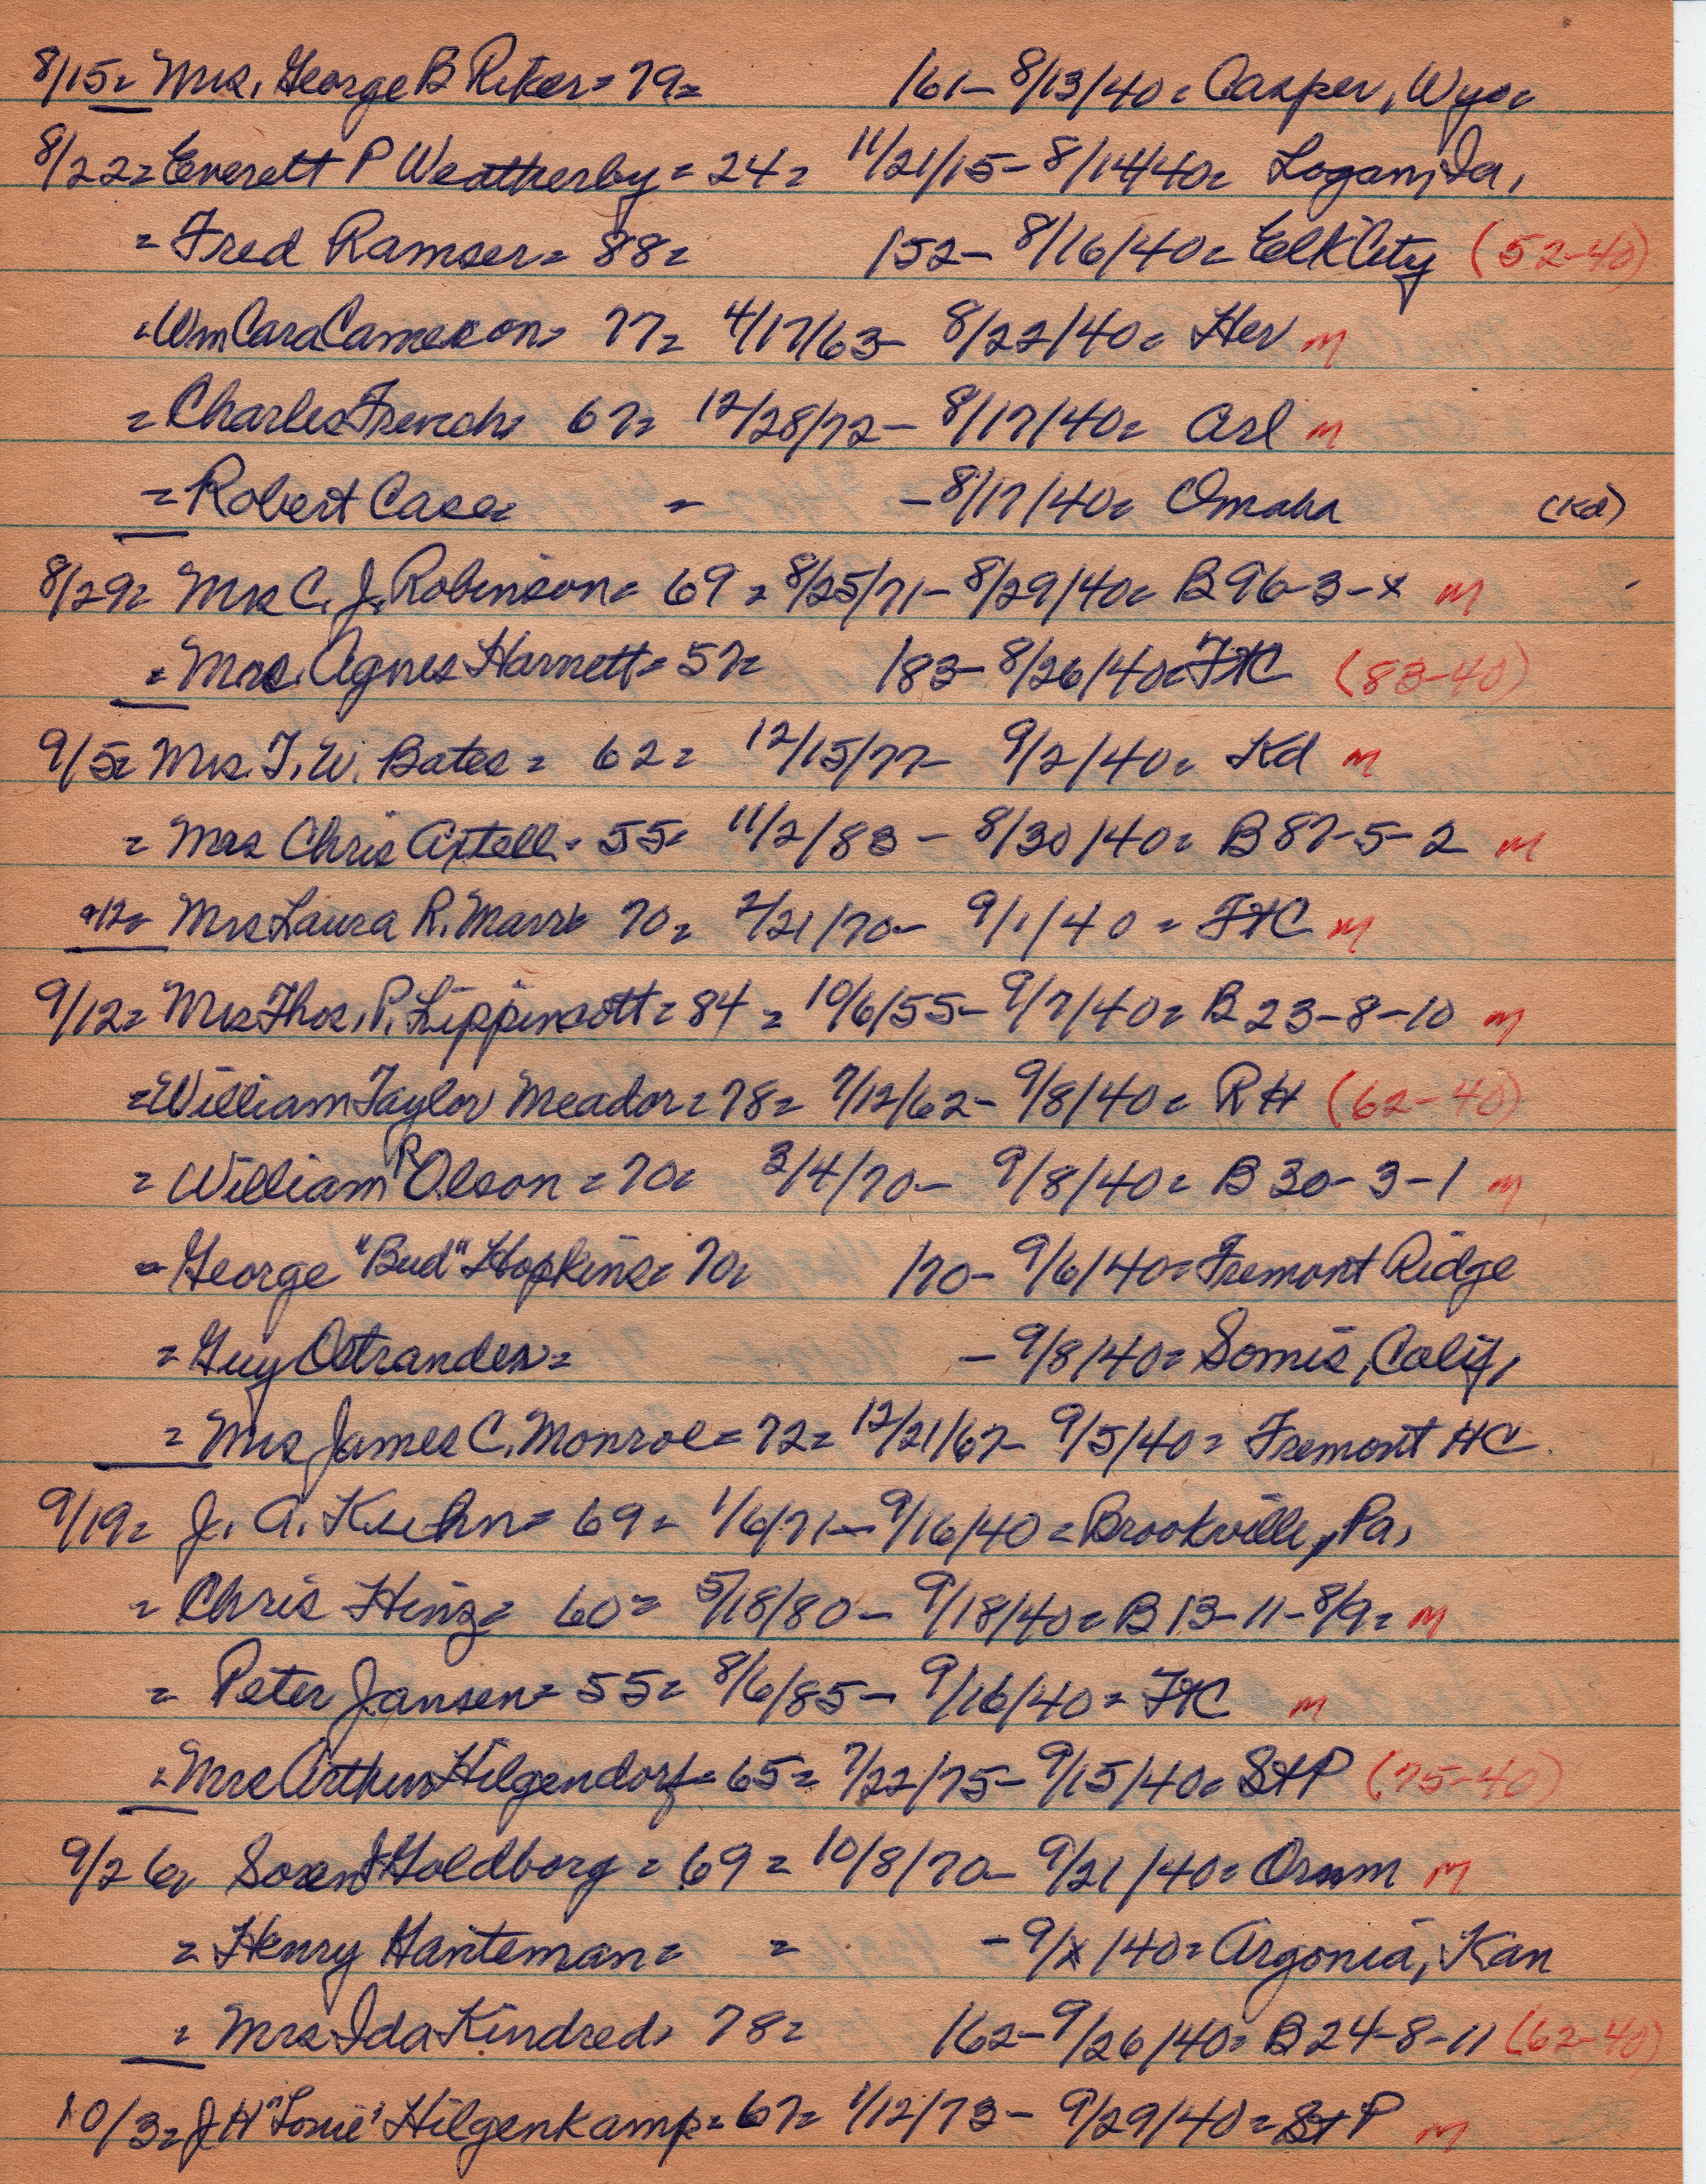 8/15= Mrs. George B Riker= 79= /61- 8/13/40= Casper, Wyo=
8/22= Everett P Weatherby= 24= 11/21/15- 8/14/40= Logan, Ia,
= Fred Ramser= 88= /52- 8/16/40= Elk City (52-40)
=Wm Cameron= 77= 4/17/63- 8/22/40= Her m
= Charles French= 67= 12/28/72- 8/17/40= Arl m
= Robert Case= = -8/17/40= Omaha (Kd)
8/29= Mrs C. J. Robinson= 69 = 8/25/71- 8/29/40= B 96-3-x m
= Mrs. Agnes Harnett= 57= /83- 8/26/40= FHC (83-40)
9/5= Mrs. T. W. Bates = 62= 12/15/77- 9/2/40= Kd m
= Mrs Chris Axtell= 55= 11/2/83 - 8/30/40= B 87-5-2 m
9/12= Mrs Laura R. 70= 2/21/70- 9/1/40 = FHC m
9/12= Mrs Thos. P. Lippincott= 84 = 10/6/55- 9/7/40= B 23-8-10 m
=William Taylor Meador= 78= 7/12/62- 9/8/40= RH (62-40)
= William R Olson = 70= 3/4/70- 9/8/40= B 30-3-1 m
= George "Bud" Hopkins= 70= /70- 9/6/40= Fremont Ridge
= Guy Ostrander= -9/8/40= Somis, Calif,
= Mrs James C. Monroe= 72= 12/21/67- 9/5/40= Fremont HC
9/19= J. A. Kuehn= 69= 1/6/71- 9/16/40 = Brookville, Pa,
= Chris Hinz= 60= 5/18/80- 9/18/40= B 13-11-8/9= m
= Peter Jansen= 55= 8/6/85- 9/16/40= FHC m
= Mrs Arthur Hilgendorf= 65= 7/22/75- 9/15/40= StP (75-40)
9/26= Soren J Goldborg = 69 = 10/8/70- 9/21/40= Orum m
= Henry Hanteman= = -9/x/40= Argonia, Kan
= Mrs Ida Kindred= 78= /62- 9/26/40= B 24-8-11 (62-40)
10/3= J H "Louie" Hilgenkamp= 67= 1/12/73- 9/29/40= StP m